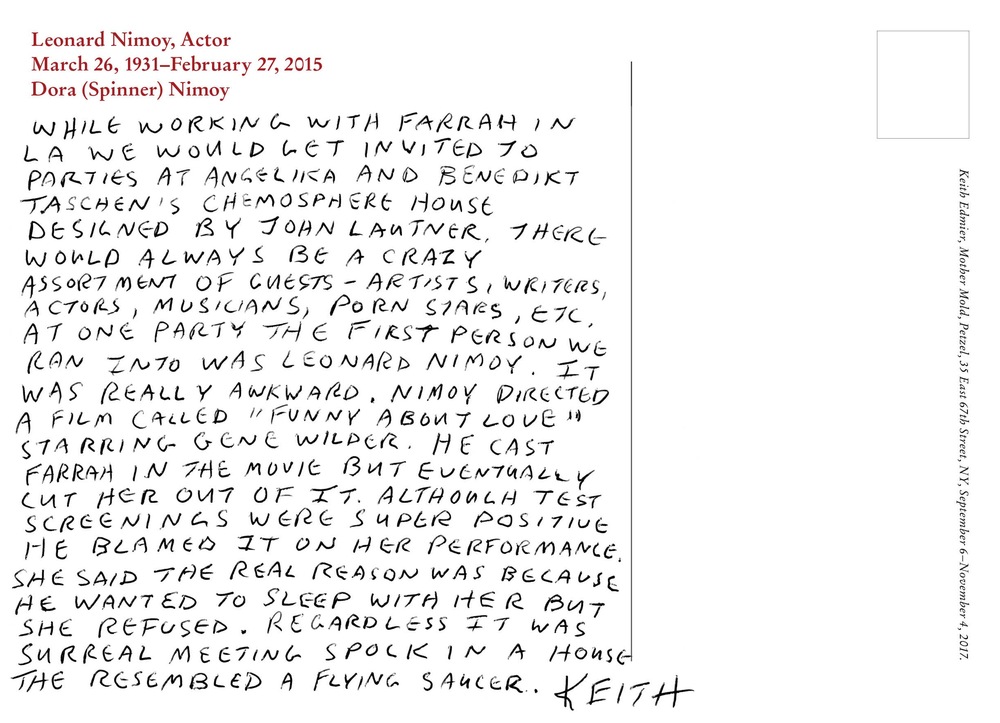 Leonard Nimoy, Actor
March 26, 1931–February 27, 2015
Dora (Spinner) Nimoy
WHILE WORKING WITH FARRAH IN
LA WE WOULD GET INVITED TO
PARTIES AT ANGELIKA AND BENEDIKT
TASCHEN'S CHEMOSPHERE HOUSE
DESIGNED BY JOHN LAUTNER. THERE
WOULD ALWAYS BE A CRAZY
ASSORTMENT OF GUESTS - ARTISTS, WRITERS,
ACTORS, MUSICIANS, PORN STARS, ETC.
AT ONE PARTY THE FIRST PERSON WE
RAN INTO WAS LEONARD NIMOY. IT
WAS REALLY AWKWARD. NIMOY DIRECTED
A FILM CALLED "FUNNY ABOUT LOVE"
STARRING GENE WILDER. HE CAST
FARRAH IN THE MOVIE BUT EVENTUALLY
CUT HER OUT OF IT. ALTHOUGH TEST
SCREENINGS WERE SUPER POSITIVE
HE BLAMED IT ON HER PERFORMANCE.
SHE SAID THE REAL REASON WAS BECAUSE
HE WANTED TO SLEEP WITH HER BUT
SHE REFUSED. REGARDLESS IT WAS
SURREAL MEETING SPOCK IN A HOUSE
THE RESEMBLED A FLYING SAUCER.. KEITH
Keith Edmier, Mother Mold, Petzel, 35 East 67th Street, NY, September 6–November 4, 2017.